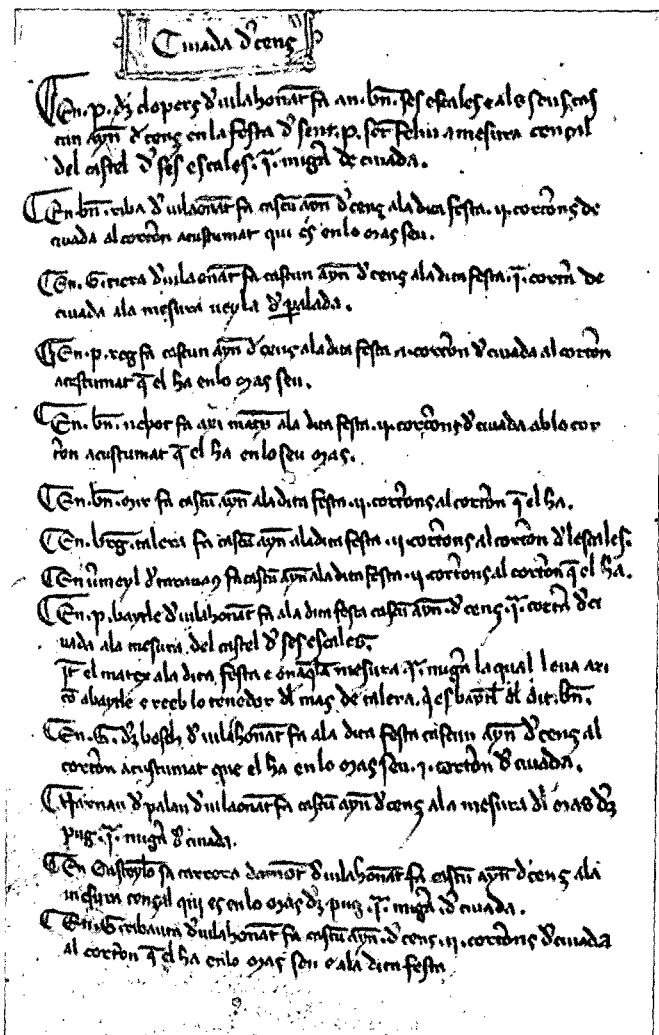 Ciuada d' cens
En .p. d'z clopers d' uilahonat fa an .bn. ses escales e als seus cas
cun ayn d' cens en la festa d' sent .p. sent feliu a mesura censal
del castel d' ses escales .j. miga de ciuada.
En bn. riba d' uilaonat fa cascu ayn d' cens ala dita festa .ij. cortons de
ciuada al corton acustumat qui es en lo mas seu.
En .G. riera d' uilaonat fa cascun ayn d' cens ala dita festa .j. corto de
ciuada ala mesura ueyla d' palada.
En .p. reg fa cascun ayn d' cens ala dita festa corton d' ciuada al corton
acustumat q el ha en lo mas seu.
En .bn. nebot fa axi matex ala dita festa .ij. cortons d' ciuada ab lo cor
ton acustumat q el ha en lo seu mas.
En .bn. mir fa cascu ayn ala dita festa .ij. cortons al corton q el ha.
En .brg. talera fa cascu ayn ala dita festa .ij. cortons al corton d' les escales.
En fa cascu ayn ala dita festa .ij. cortons al corton q el ha.
En .p. baytle d' uilahonat fa ala dita festa cascu ayn d' cens .j. corto d' ci
uada ala mesura del castel d' ses escales.
It el matex ala dita festa e en aqla mesura .j. miga la qual leua axi
co abaytle e reeb lo tenedor dl mas de talera, q es baytl del dit .bn.
En .G. d'z bosch d' uilahonat fa ala dita festa cascun ayn d' cens al
corton acustumat que el ha en lo mas seu .j. corton d' ciuada.
Narnau d' palau d' uilaonat fa cascu ayn d' cens ala mesura dl mas d'z
pug .j. miga d' ciuada.
En sa carrera damot d' uilahonat fa cascu ayn d' cens ala
mesura censal qui es en lo mas d'z pug .j. miga d' ciuada.
En .G. ribauta d' uilahonat fa cascu ayn d' cens .ij. cortons d' ciuada
al corton q el ha en lo mas seu e ala dita festa